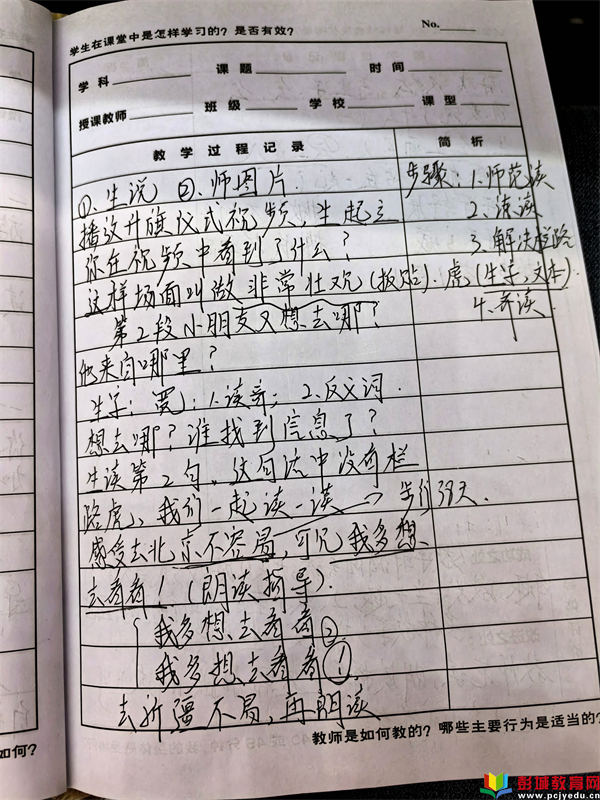 学生在课堂中是怎样学习的？是否有效？ No.
学科 课题 时间
授课教师 班级 学校 课型
教学过程记录 简析
①、生说 ②、师图片. 步骤：1.师范读
播放升旗仪式视频，生起立 2.读
你在视频中看到了什么？ 3.解决拦路
这样场面叫做 非常壮观(板贴). 虎(生字,文本).
第2段小朋友又想去哪？ 4.齐读.
他来自哪里？
生字：宽；1.读音；2.反义词.
想去哪？谁找到信息了？
生读第2句，这句话中没有拦
路虎，我们一起读一读 步行39天.
感受去北京不容易，可见我多想
去看看！(朗读指导).
我多想去看看。
我多想去看看！
去新疆不易，再朗读
教师是如何教的？哪些主要行为是适当的？
如何？
彭城教育网
www.pcjyedu.cn